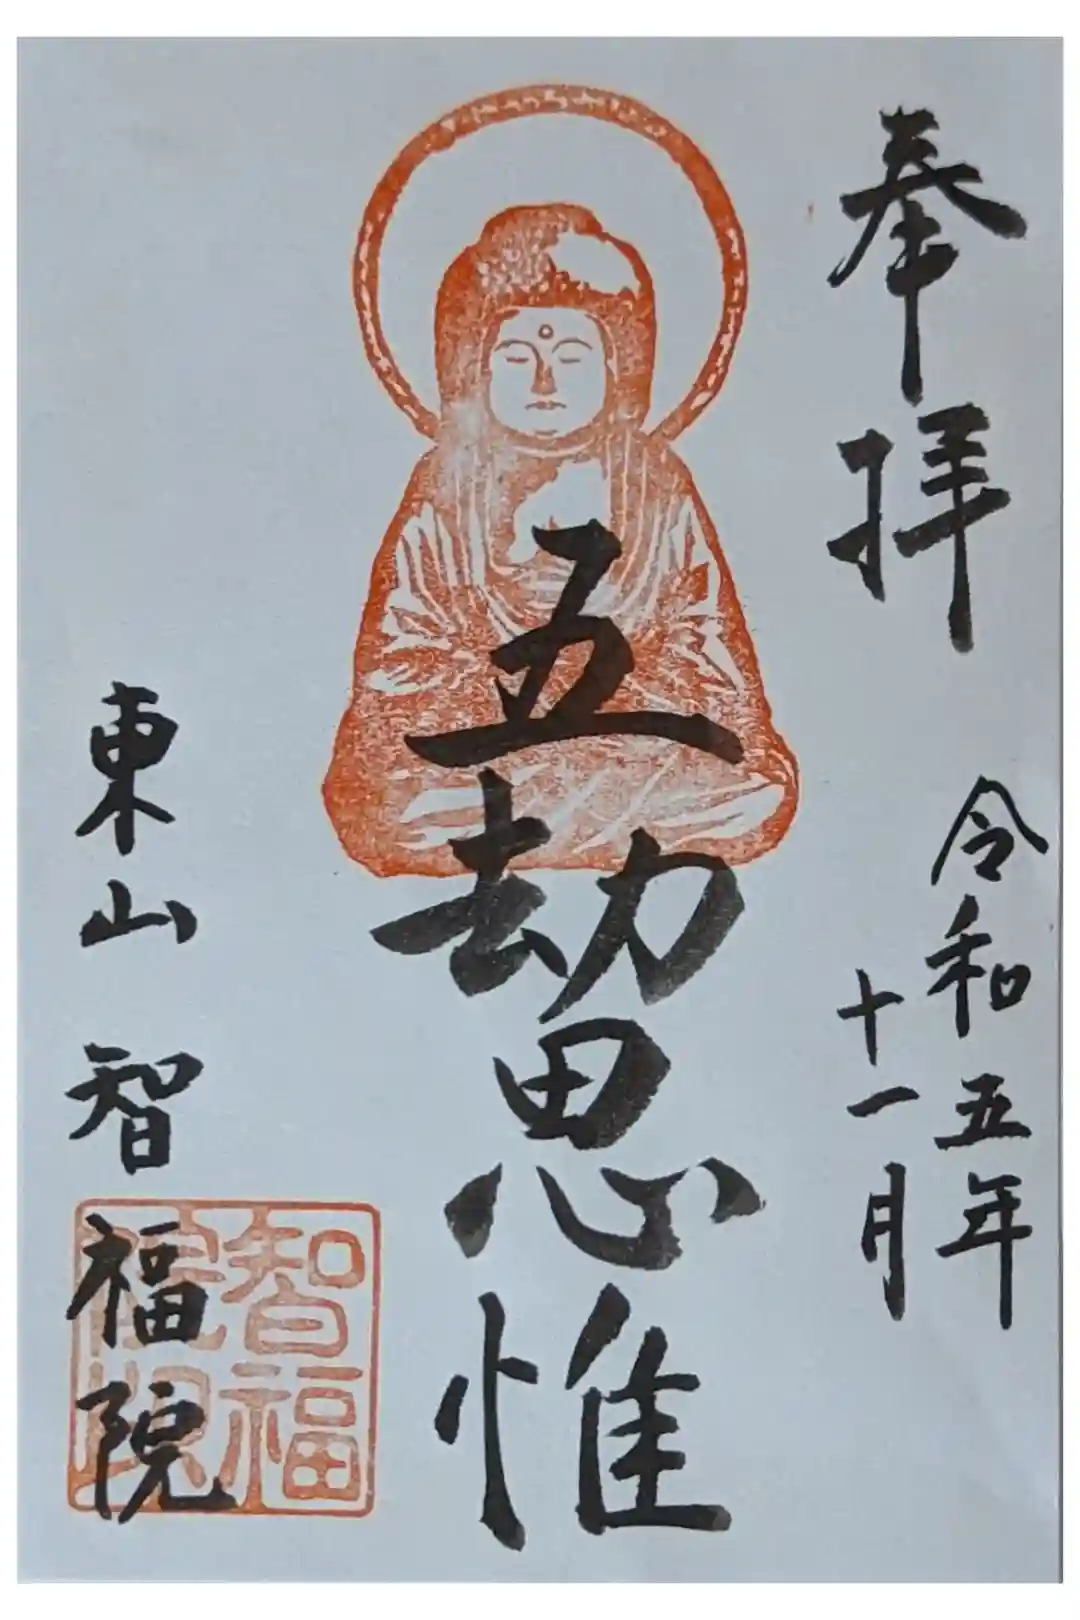 奉拝
令和五年
十一月
五劫思惟
東山智福院
智福院印